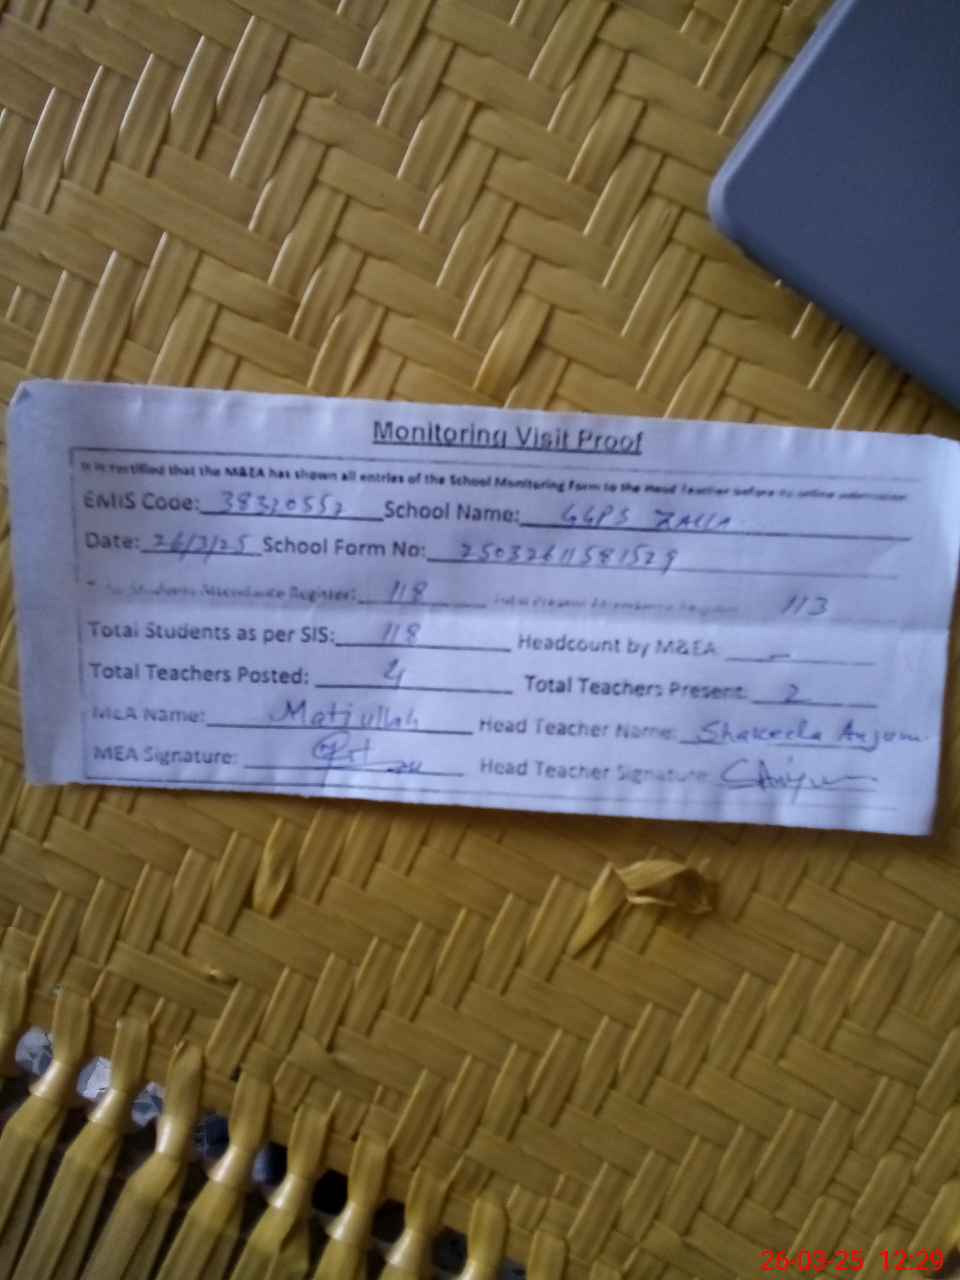 Monitoring Visit Proof
It is certified that the M&EA has shown all entries of the School Monitoring Form to the Head Teacher before its online submission
EMIS Code: 38320552 School Name: GGPS
Date: 26/3/25 School Form No: 25032611581529
Students Attendance Register: 118 Total Present Attendance Register 113
Total Students as per SIS: 118 Headcount by M&EA -
Total Teachers Posted: 4 Total Teachers Present: 2
MEA Name: Matiullah Head Teacher Name: Shakeela Anjum
MEA Signature: Head Teacher Signature:
26-03-25 12:29